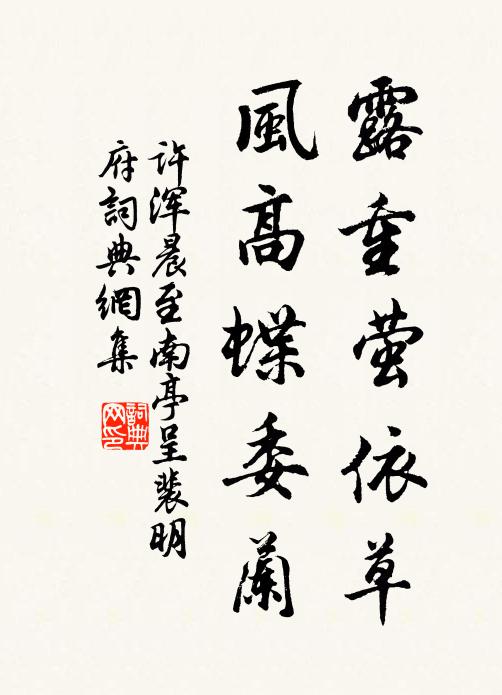 露重萤依草
風高蝶委蘭
许浑晨至南亭呈裴明
府詞典網集
詞典网印